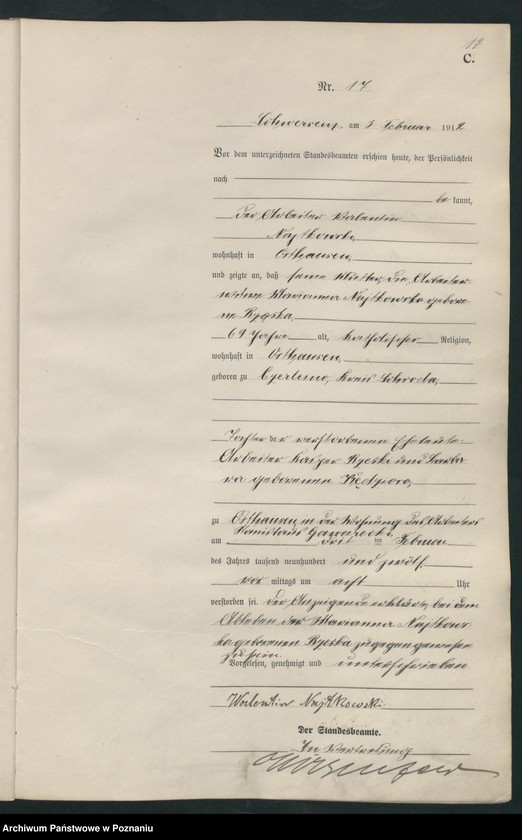 C.
Nr. 17
am 3 Februar 1912
Vor dem unterzeichneten Standesbeamten erschien heute, der Persönlichkeit
nach
be kannt,
der Arbeiter Valentin
Najtkowski,
wohnhaft in Osthausen,
und zeigte an, daß seine Mutter, die Arbeiter
witwe Marianna Najtkowska gebore
ne Rzeska,
69 Jahre alt, katholischer Religion,
wohnhaft in Osthausen,
geboren zu Czerleino, Kreis Schroda,
Tochter der verstorbenen Eheleute
Arbeiter Kasper Rzeski und Barba
ra geborenen
zu Osthausen, in der Wohnung des Arbeiters
Stanislaus
am im Februar
des Jahres tausend neunhundert und zwölf,
vor mittags um acht Uhr
verstorben sei. Der Anzeigende erklärte, bei dem
Ableben der Marianna Najtkows
ka geborenen Rzeska zugegen gewesen
zu sein.
Vorgelesen, genehmigt und unterschrieben
Walentin Najtkowski
Der Standesbeamte.
In Vertretung
Archiwum Państwowe w Poznaniu